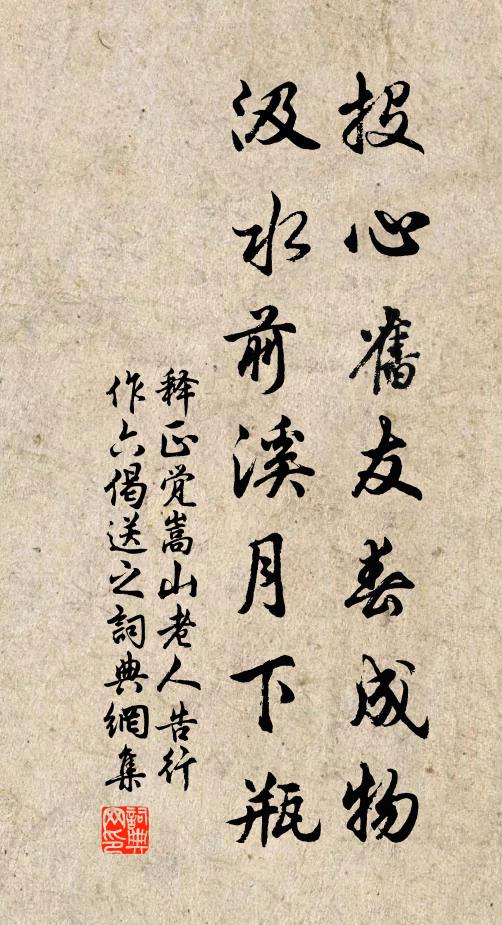 投心旧友春成物
汲水前溪月下瓶
释正觉嵩山老人告行
作六偈送之词典網集
詞典网印